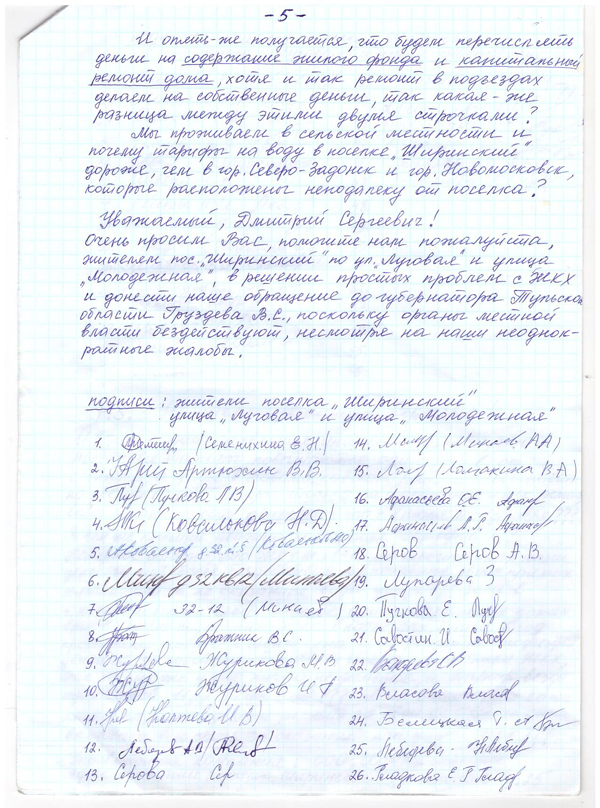 - 5 -
И опять-же получается, что будем перечислять
деньги на содержание жилого фонда и капитальный
ремонт дома, хотя и так ремонт в подъездах
делаем на собственные деньги, так какая-же
разница между этими двумя строчками?
Мы проживаем в сельской местности и
почему тарифы на воду в поселке „Ширинский"
дороже, чем в гор. Северо-Задонск и гор. Новомосковск,
которые расположены неподалеку от поселка?
Уважаемый, Дмитрий Сергеевич!
Очень просим Вас, помогите нам пожалуйста,
жителем пос. „Ширинский" по ул. „Луговая" и улица
„Молодежная", в решении простых проблем с ЖКХ
и донести наше обращение до губернатора Тульской
области Груздева В.С., поскольку органы местной
власти бездействуют, несмотря на наши неоднок-
ратные жалобы.
подписи: жители поселка „Ширинский"
улица „Луговая" и улица „Молодежная"
1. (Семенихина Е.Н.)
2. Артюхин В.В.
3. (Пучкова Л В)
4. (Ковалькова Н.Д).
5. д 32 кв 5
6. д 32 кв 12 (Минаева)
7. 32-12 (Минаев)
8. Вражник В С.
9. Журикова М В
10. Журиков И А
11. (Коптева И В)
12. Лебедев А Д
13. Серова Сер
14. (Минаев А А)
15. (Ломакина В А)
16. Афанасьева О.Е.
17. Афанасьев
18. Серов Серов А. В.
19. Лупарева З
20. Пучкова. Е.
21. Савостин. И
22.
23. Власова
24. Белицкая Т. А
25. Лебедева -
26. Гладкова Е Р Глад